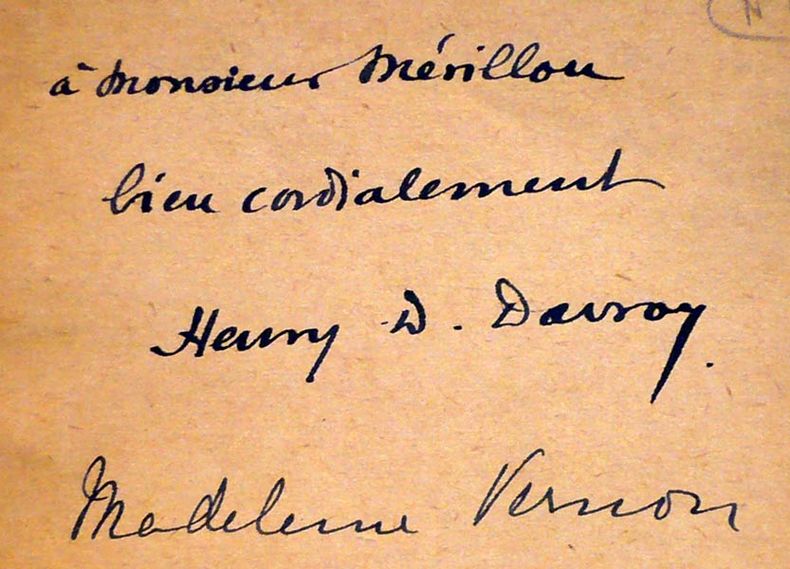 à monsieur Mérillon
bien cordialement
Henry D. Davray.
Madeleine Vernon